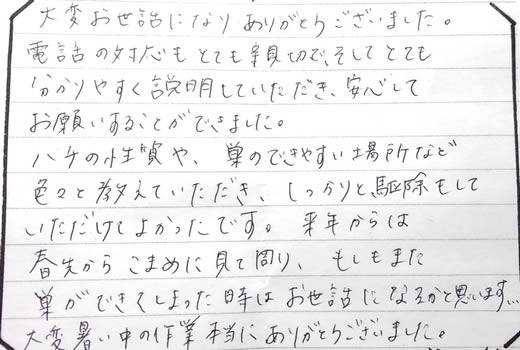 大変お世話になりありがとうございました。
電話の対応もとても親切で、そしてとても
分かりやすく説明していただき、安心して
お願いすることができました。
ハチの性質や、巣のできやすい場所など
色々と教えていただき、しっかりと駆除もして
いただけてよかったです。来年からは
春先からこまめに見て周り、もしもまた
巣ができてしまった時はお世話になるかと思います…
大変暑い中の作業本当にありがとうございました。